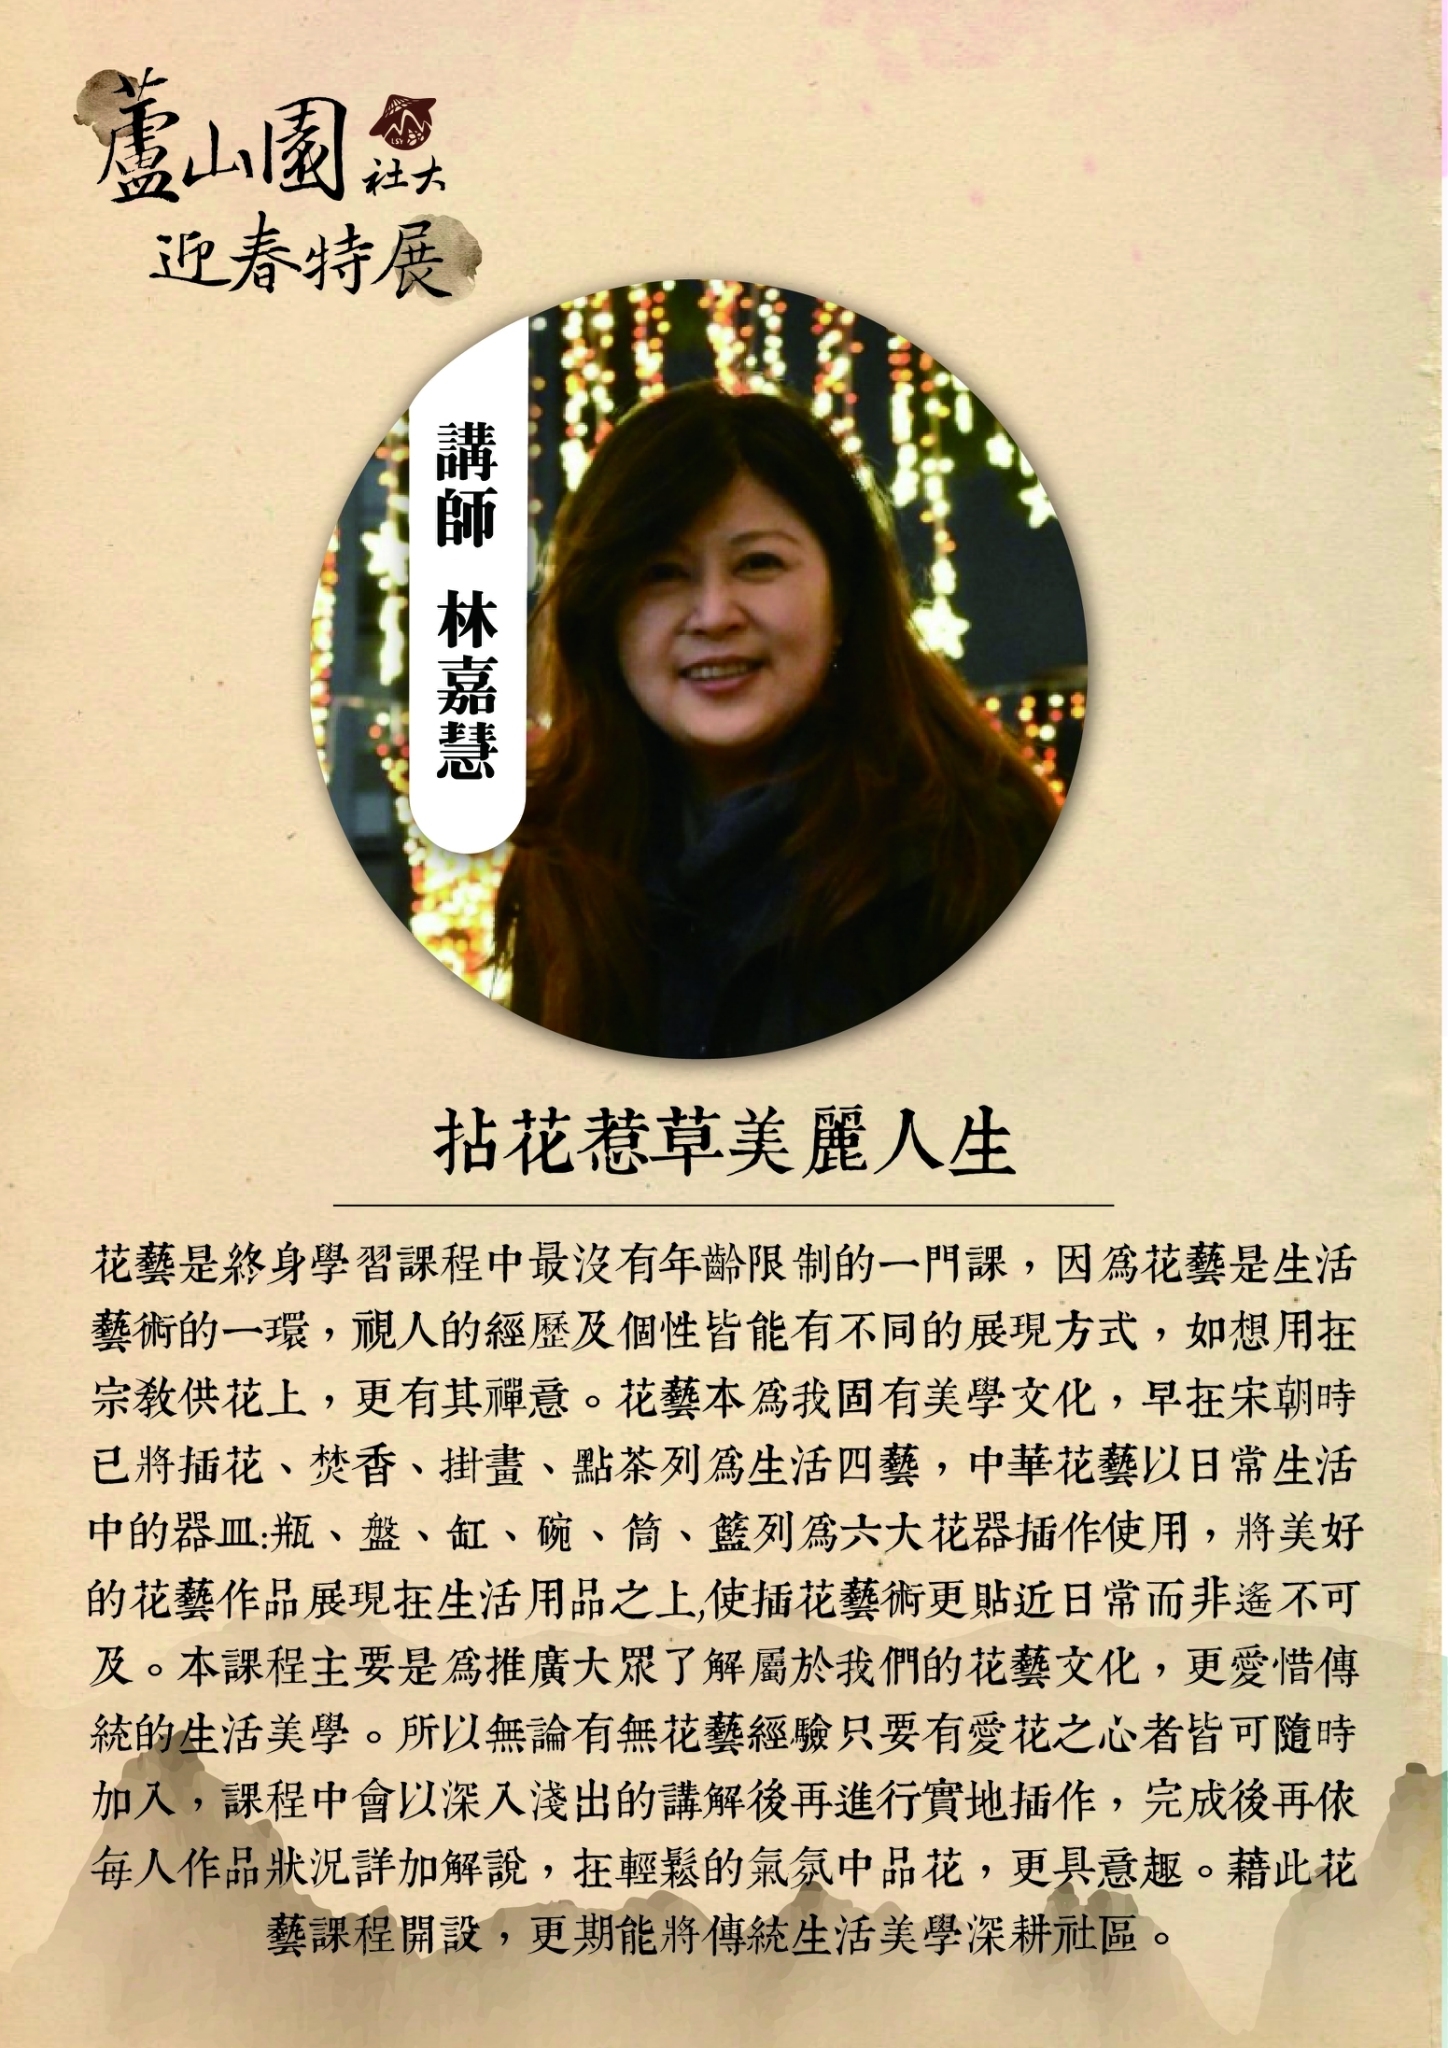 蘆山園
LSY
社大
迎春特展
講師 林嘉慧
拈花惹草美麗人生
花藝是終身學習課程中最沒有年齡限制的一門課，因為花藝是生活
藝術的一環，視人的經歷及個性皆能有不同的展現方式，如想用在
宗教供花上，更有其禪意。花藝本為我固有美學文化，早在宋朝時
已將插花、焚香、掛畫、點茶列為生活四藝，中華花藝以日常生活
中的器皿:瓶、盤、缸、碗、筒、籃列為六大花器插作使用，將美好
的花藝作品展現在生活用品之上,使插花藝術更貼近日常而非遙不可
及。本課程主要是為推廣大眾了解屬於我們的花藝文化，更愛惜傳
統的生活美學。所以無論有無花藝經驗只要有愛花之心者皆可隨時
加入，課程中會以深入淺出的講解後再進行實地插作，完成後再依
每人作品狀況詳加解說，在輕鬆的氣氛中品花，更具意趣。藉此花
藝課程開設，更期能將傳統生活美學深耕社區。